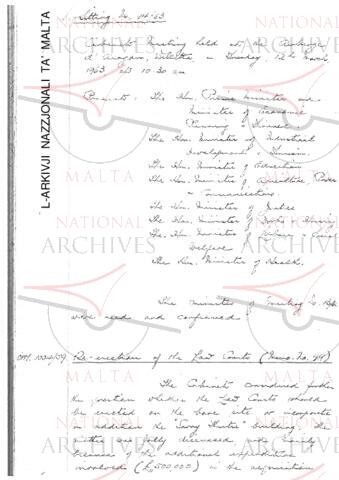 Sitting No. 14/63
Cabinet Meeting held at the Auberge
d'Aragon, Valletta on Tuesday, 12th March,
1963 at 10.30 am
Present: The Hon. Prime Minister and
Minister of Economic
Planning & Finance
The Hon. Minister of Industrial
Development & Tourism
The Hon. Minister of Education
The Hon. Minister of Agriculture, Power
& Communications
The Hon. Minister of Justice
The Hon. Minister of Works & Housing
The Hon. Minister of Labour & Social
Welfare
The Hon. Minister of Health.
The Minutes of Meeting No.
were read and confirmed
Re-erection of the Law Courts (Memo. No. 49)
The Cabinet considered further
the question whether the Law Courts should
be erected on the same site or incorporate
in addition the "Savoy Theatre" building; the
matter was fully discussed and mainly
because of the additional expenditure
involved (£500,000) in the acquisition
L-ARKIVJI NAZZJONALI TA' MALTA
NATIONAL
ARCHIVES
MALTA